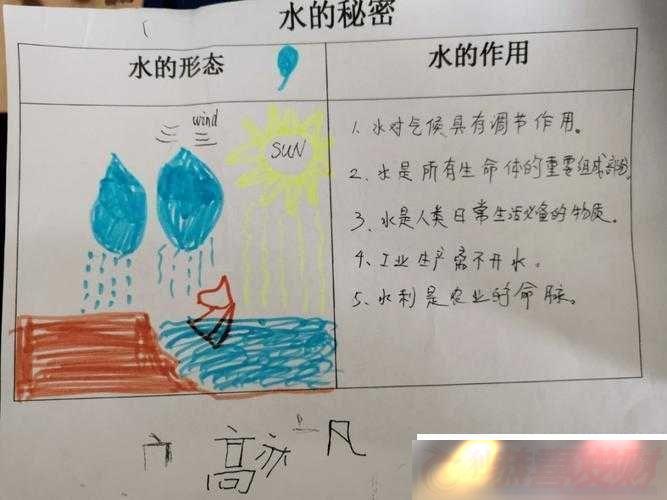 水的秘密
水的形态
水的作用
wind
SUN
1、水对气候具有调节作用。
2、水是所有生命体的重要组成部分。
3、水是人类日常生活必备的物质。
4、工业生产离不开水。
5、水利是农业的命脉。
高亦凡